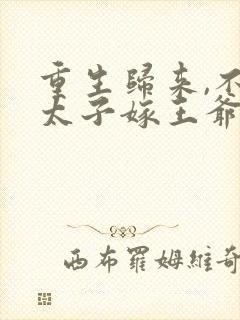 重生歸來,不
太子嫁王爺
西布羅姆維奇